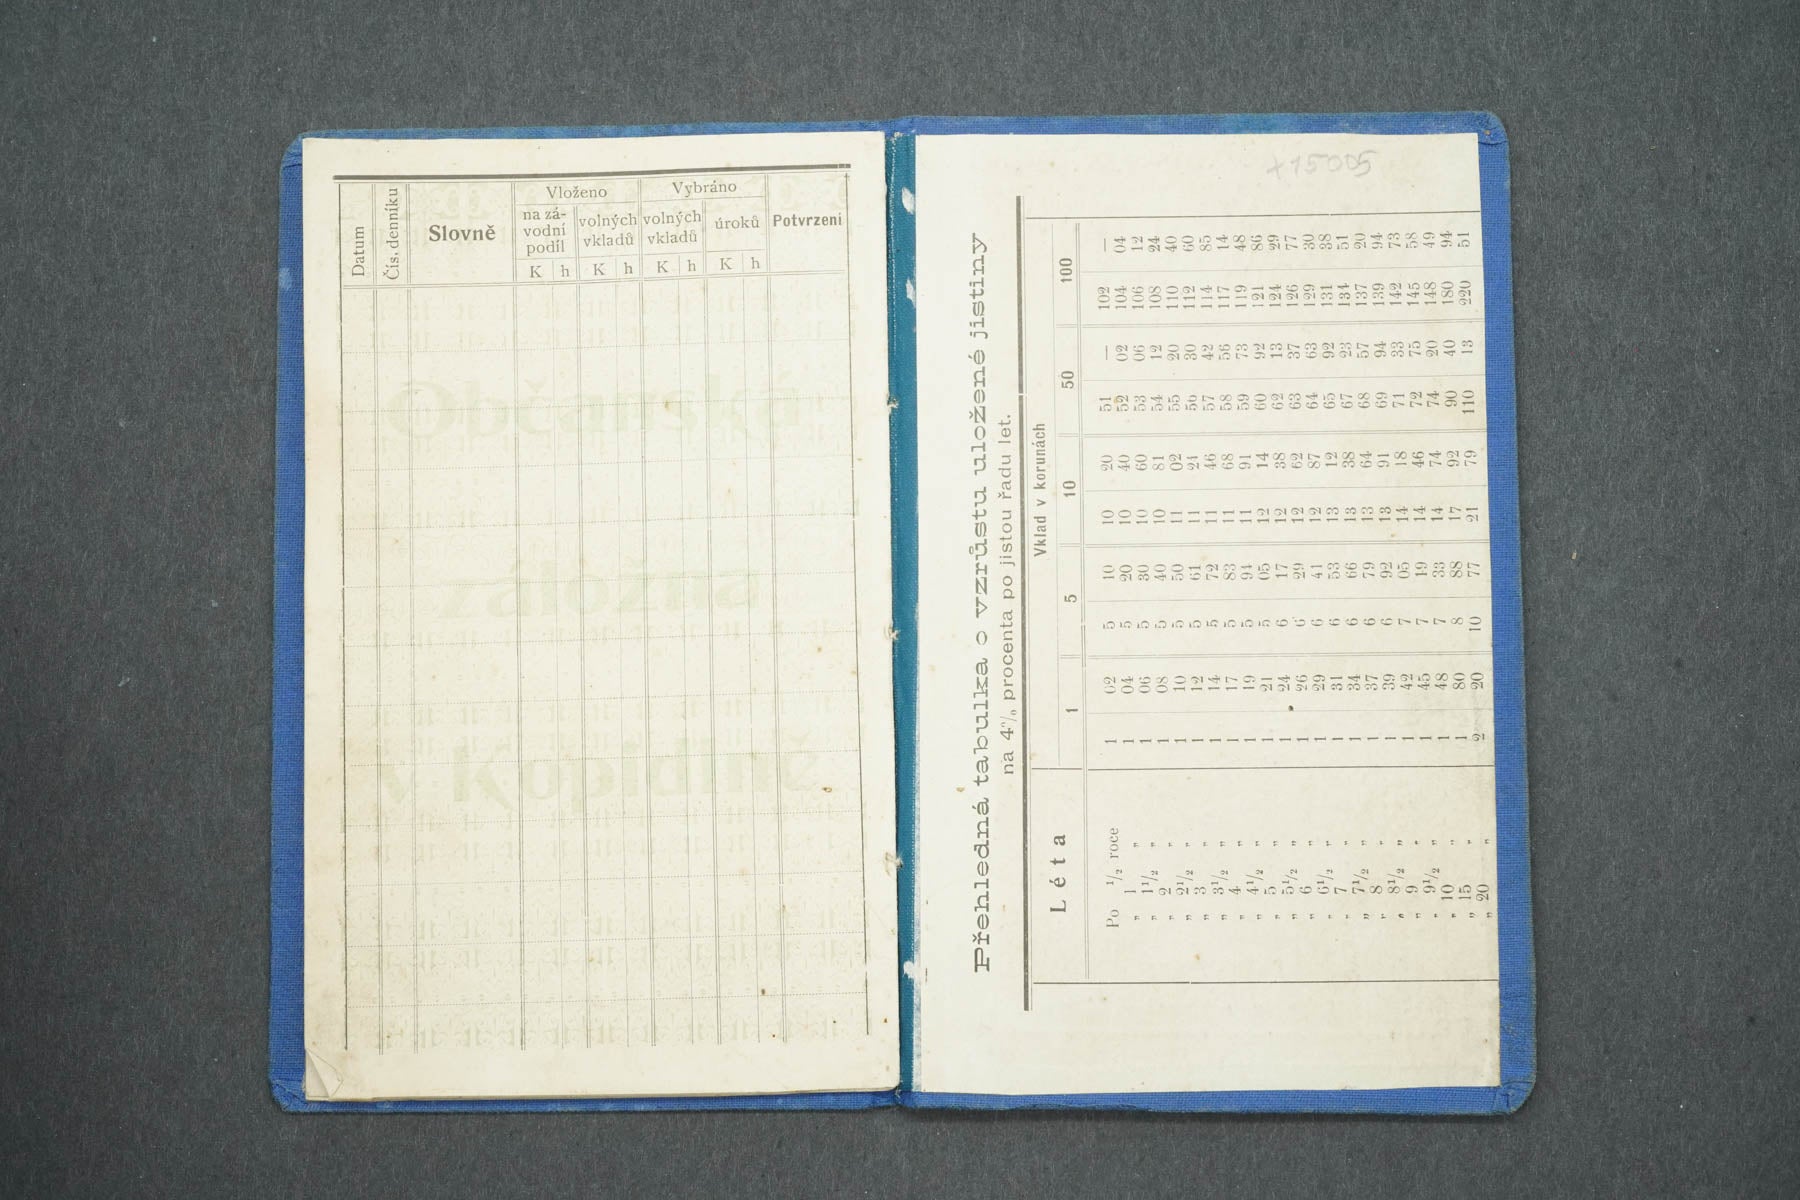 Datum Čís. denníku Slovně Vloženo Vybráno Potvrzení
na zá-
vodní
podíl
volných
vkladů
volných
vkladů
úroků
K h K h K h K h
Občanská
záložna
v Kopidlně
+15005
Přehledná tabulka o vzrůstu uložené jistiny
na 4% procenta po jistou řadu let.
Léta Vklad v korunách
1 5 10 50 100
Po ½ roce 1 02 5 10 10 20 51 — 102 —
„ 1 „ 1 04 5 20 10 40 52 02 104 04
„ 1½ „ 1 06 5 30 10 60 53 06 106 12
„ 2 „ 1 08 5 40 10 81 54 12 108 24
„ 2½ „ 1 10 5 50 11 02 55 20 110 40
„ 3 „ 1 12 5 61 11 24 56 30 112 60
„ 3½ „ 1 14 5 72 11 46 57 42 114 85
„ 4 „ 1 17 5 83 11 68 58 56 117 14
„ 4½ „ 1 19 5 94 11 91 59 73 119 48
„ 5 „ 1 21 5 05 12 14 60 92 121 86
„ 5½ „ 1 24 6 17 12 38 62 13 124 29
„ 6 „ 1 26 6 29 12 62 63 37 126 77
„ 6½ „ 1 29 6 41 12 87 64 63 129 30
„ 7 „ 1 31 6 53 13 12 65 92 131 38
„ 7½ „ 1 34 6 66 13 38 67 23 134 51
„ 8 „ 1 37 6 79 13 64 68 57 137 20
„ 8½ „ 1 39 6 92 13 91 69 94 139 94
„ 9 „ 1 42 7 05 14 18 71 33 142 73
„ 9½ „ 1 45 7 19 14 46 72 75 145 58
„ 10 „ 1 48 7 33 14 74 74 20 148 49
„ 15 „ 1 80 8 88 17 92 90 40 180 94
„ 20 „ 2 20 10 77 21 79 110 13 220 51